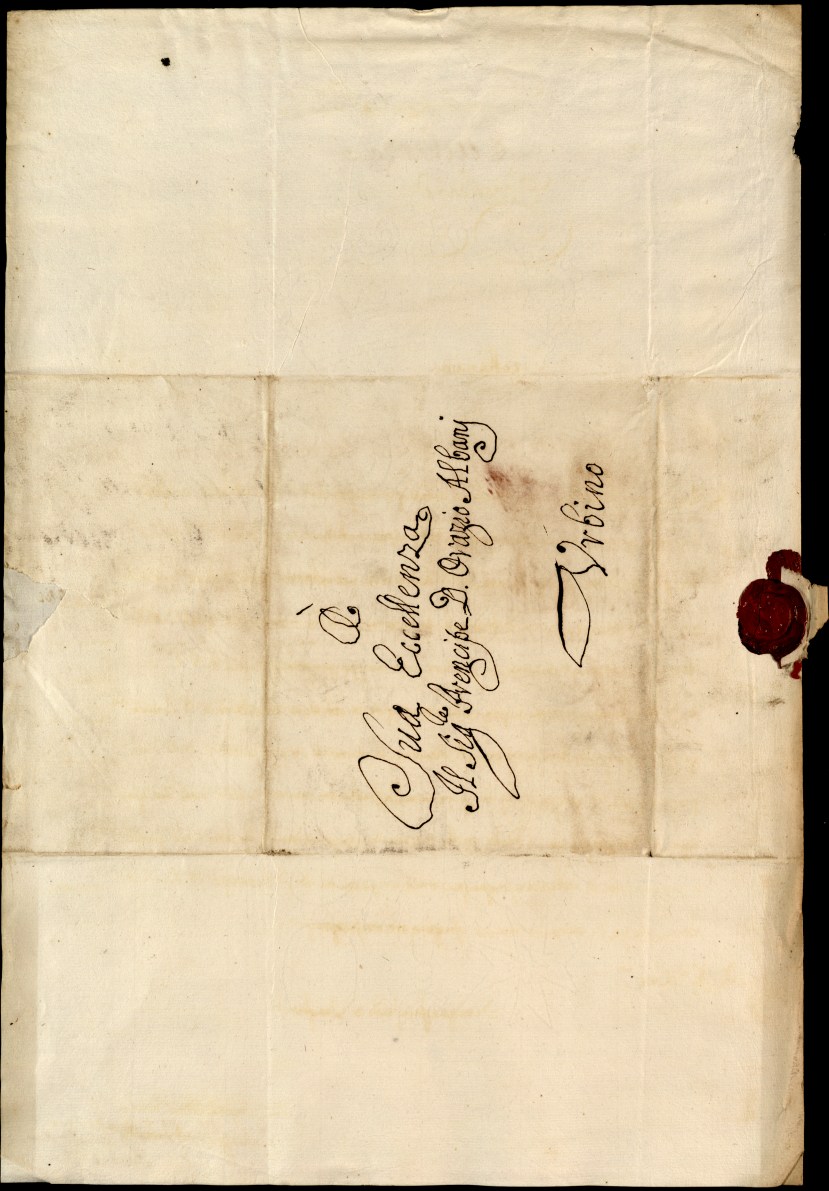 À
Sua Eccellenza
Il Sig.re Prencipe D. Orazio Albanj
Urbino